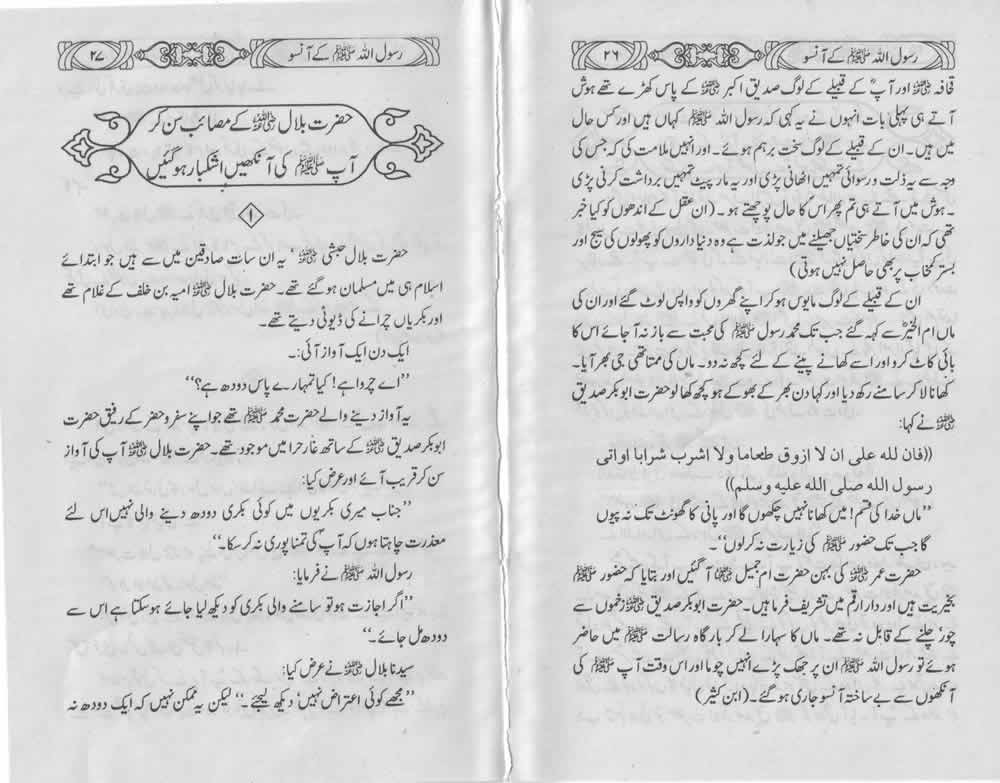 رسول اللہ ﷺ کے آنسو ۲۶
قافہ رضی اللہ عنہ اور آپؓ کے قبیلے کے لوگ صدیق اکبر رضی اللہ عنہ کے پاس کھڑے تھے ہوش
آتے ہی پہلی بات انہوں نے یہ کہی کہ رسول اللہ ﷺ کہاں ہیں اور کس حال
میں ہیں۔ ان کے قبیلے کے لوگ سخت برہم ہوئے۔ اور انہیں ملامت کی کہ جس کی
وجہ سے یہ ذلت و رسوائی تمہیں اٹھانی پڑی اور یہ مار پیٹ تمہیں برداشت کرنی پڑی
۔ ہوش میں آتے ہی تم پھر اس کا حال پوچھتے ہو۔ (ان عقل کے اندھوں کو کیا خبر
تھی کہ ان کی خاطر سختیاں جھیلنے میں جو لذت ہے وہ دنیا داروں کو پھولوں کی سیج اور
بستر کمخاب پر بھی حاصل نہیں ہوتی)
ان کے قبیلے کے لوگ مایوس ہو کر اپنے گھروں کو واپس لوٹ گئے اور ان کی
ماں ام الخیرؓ سے کہہ گئے جب تک محمد رسول ﷺ کی محبت سے باز نہ آ جائے اس کا
بائی کاٹ کرو اور اسے کھانے پینے کے لئے کچھ نہ دو۔ ماں کی ممتا تھی جی بھر آیا۔
کھانا لا کر سامنے رکھ دیا اور کہا دن بھر کے بھوکے ہو کچھ کھا لو حضرت ابوبکر صدیق
رضی اللہ عنہ نے کہا:
((فان لله على ان لا ازوق طعاما ولا اشرب شرابا اواتى
رسول الله صلى الله عليه وسلم))
”ماں خدا کی قسم! میں کھانا نہیں چکھوں گا اور پانی کا گھونٹ تک نہ پیوں
گا جب تک حضور ﷺ کی زیارت نہ کر لوں“۔
حضرت عمر رضی اللہ عنہ کی بہن حضرت ام جمیل رضی اللہ عنہا آ گئیں اور بتایا کہ حضور ﷺ
بخیریت ہیں اور دار ارقم میں تشریف فرما ہیں۔ حضرت ابوبکر صدیق رضی اللہ عنہ زخموں سے
چور‘ چلنے کے قابل نہ تھے۔ ماں کا سہارا لے کر بارگاہ رسالت ﷺ میں حاضر
ہوئے تو رسول اللہ ﷺ ان پر جھک پڑے انہیں چوما اور اس وقت آپ ﷺ کی
آنکھوں سے بے ساختہ آنسو جاری ہو گئے۔ (ابن کثیر)
رسول اللہ ﷺ کے آنسو ۲۷
حضرت بلال رضی اللہ عنہ کے مصائب سن کر
آپ ﷺ کی آنکھیں اشکبار ہو گئیں
۱
حضرت بلال حبشی رضی اللہ عنہ‘ یہ ان سات صادقین میں سے ہیں جو ابتدائے
اسلام ہی میں مسلمان ہو گئے تھے۔ حضرت بلال رضی اللہ عنہ امیہ بن خلف کے غلام تھے
اور بکریاں چرانے کی ڈیوٹی دیتے تھے۔
ایک دن ایک آواز آئی:۔
”اے چرواہے! کیا تمہارے پاس دودھ ہے؟“
یہ آواز دینے والے حضرت محمد ﷺ تھے جو اپنے سفر و حضر کے رفیق حضرت
ابوبکر صدیق رضی اللہ عنہ کے ساتھ غار حرا میں موجود تھے۔ حضرت بلال رضی اللہ عنہ آپ کی آواز
سن کر قریب آئے اور عرض کیا:
”جناب میری بکریوں میں کوئی بکری دودھ دینے والی نہیں اس لئے
معذرت چاہتا ہوں کہ آپؐ کی تمنا پوری نہ کر سکا۔“
رسول اللہ ﷺ نے فرمایا:
”اگر اجازت ہو تو سامنے والی بکری کو دیکھ لیا جائے ہو سکتا ہے اس سے
دودھ مل جائے۔“
سیدنا بلال رضی اللہ عنہ نے عرض کیا:
”مجھے کوئی اعتراض نہیں‘ دیکھ لیجیے۔“ لیکن یہ ممکن نہیں کہ ایک دودھ نہ